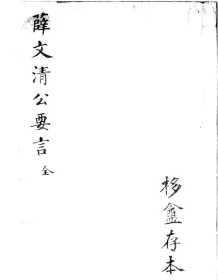 薛文清公要言 全
移盦存本